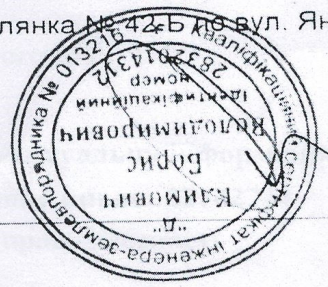 лянка № 42-Б по вул. Ян
Кваліфікаційний сертифікат інженера-землевпорядника № 013216
"Д"
Климович
Борис
Володимирович
Ідентифікаційний
номер
2832014312